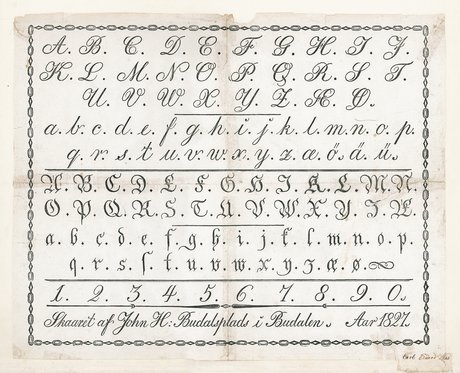 A. B. C. D. E. F. G. H. I. J.
K. L. M. N. O. P. Q. R. S. T.
U. V. W. X. Y. Z. Æ. Ø.
a. b. c. d. e. f. g. h. i. j. k. l. m. n. o. p.
q. r. s. t. u. v. w. x. y. z. æ. ö. ä. ü.
A. B. C. D. E. F. G. H. I. K. L. M. N.
O. P. Q. R. S. T. U. V. W. X. Y. Z. Æ.
a. b. c. d. e. f. g. h. i. j. k. l. m. n. o. p.
q. r. s. ſ. t. u. v. w. x. y. z. æ. ø.
1. 2. 3. 4. 5. 6. 7. 8. 9. 0.
Skaaret af John H: Budalsplads i Budalen. Aar 1827.